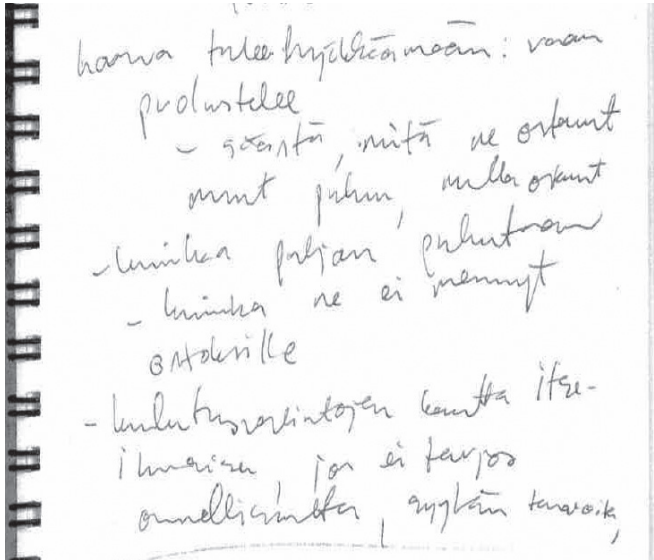 harva tulee hyökkäämään : vaan
puolustelee
- säästä, mitä ne ostanut
muut puhuu,
- kuinka paljon puhutaan
- kuinka ne ei mennyt
ostoksille
- kulutusvalintojen kautta itse-
ilmaisu, jos ei tarjoa
onnellisuutta, syytän tavaroita,